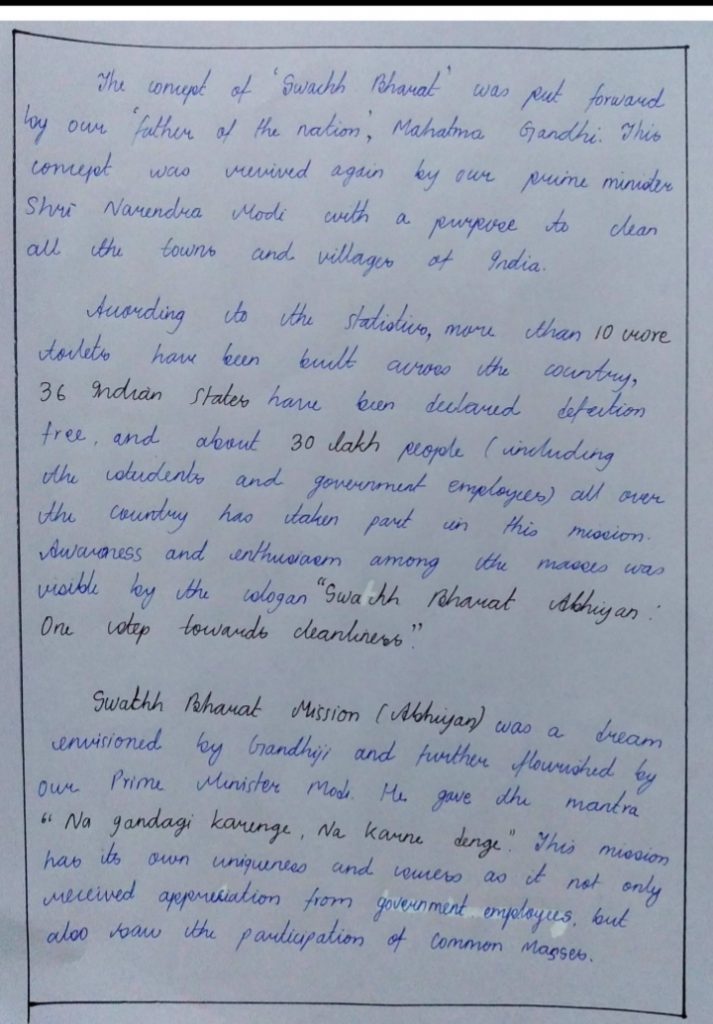 The concept of 'Swachh Bharat' was put forward
by our 'father of the nation', Mahatma Gandhi. This
concept was revived again by our prime minister
Shri Narendra Modi with a purpose to clean
all the towns and villages of India.
According to the statistics, more than 10 crore
toilets have been built across the country,
36 Indian States have been declared defection
free, and about 30 lakh people (including
the students and government employees) all over
the country has taken part in this mission.
Awarness and enthusiasm among the masses was
visible by the slogan "Swachh Bharat Abhiyan :
One step towards cleanliness."
Swachh Bharat Mission (Abhiyan) was a dream
envisioned by Gandhiji and further flourished by
our Prime Minister Modi. He gave the mantra
"Na gandagi karenge, Na karne denge". This mission
has its own uniqueness and success as it not only
received appreciation from government employees, but
also saw the participation of Common Masses.